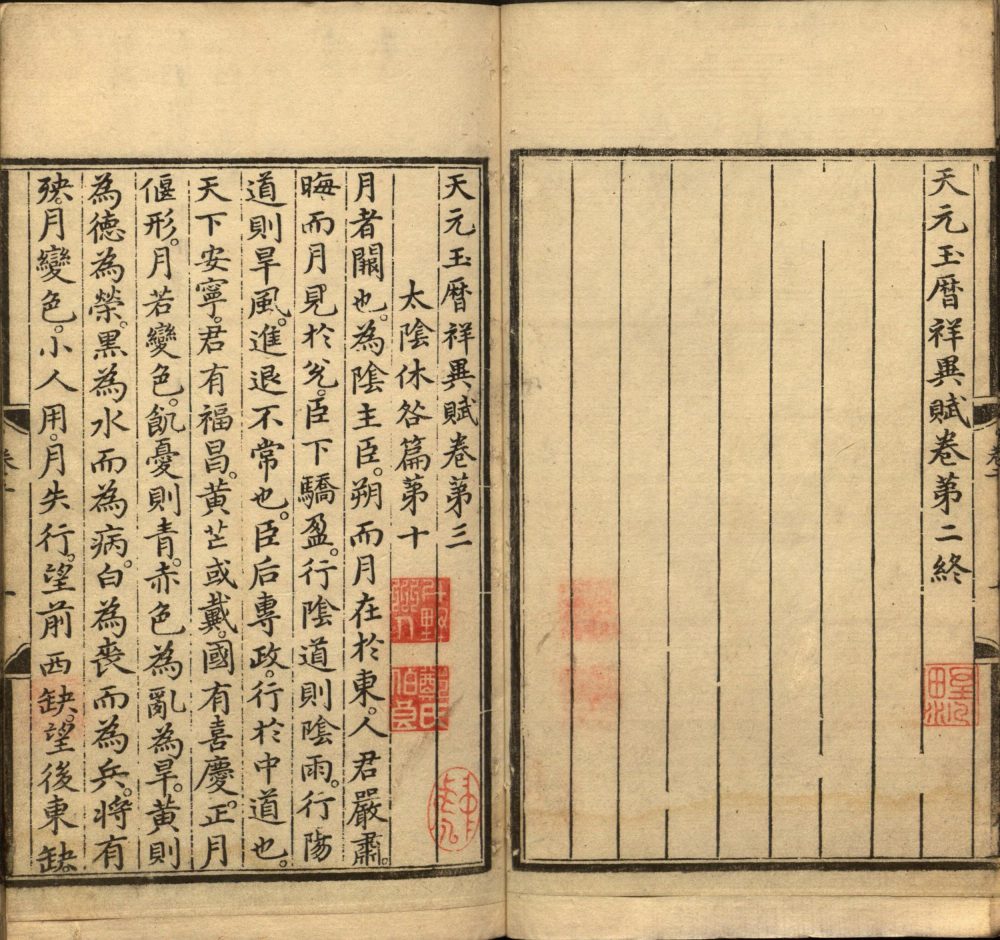 天元玉曆祥異賦卷第二終
天元玉曆祥異賦卷第三
太陰休咎篇第十
月者闕也。為陰主臣。朔而月在於東。人君嚴肅。
晦而月見於兊。臣下驕盈。行陰道則陰雨。行陽
道則旱風。進退不常也。臣后專政。行於中道也。
天下安寧。君有福昌。黃芒或戴。國有喜慶。正月
偃形。月若變色。飢憂則青。赤色為亂為旱。黃則
為德為榮。黑為水而為病。白為喪而為兵。將有
殃。月變色。小人用。月失行。望前西缺。望後東缺。